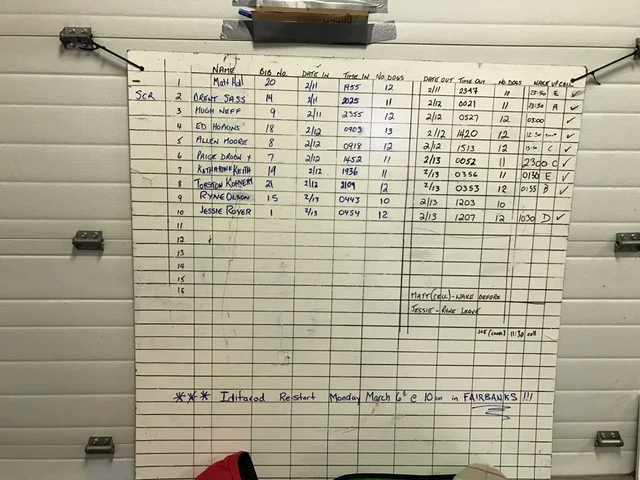 NAME BIB NO. DATE IN TIME IN NO. DOGS DATE OUT TIME OUT NO. DOGS WAKE UP CELL
1 Matt Hall 20 2/11 1955 12 2/11 2347 12 E ✓
SCR 2 BRENT SASS 14 2/11 2025 11 2/12 0021 11 23:30 A ✓
3 HUGH NEFF 9 2/11 2355 12 2/12 0527 12 03:00 ✓
4 ED HOPKINS 18 2/12 0903 13 2/12 1420 12 12:30 ✓
5 ALLEN MOORE 8 2/12 0918 12 2/12 1513 12 C ✓
6 PAIGE DROBNY 7 2/12 1452 11 2/13 0052 11 2300 C ✓
7 KATHERINE KEITH 19 2/12 1936 11 2/13 0356 11 0130 E ✓
8 TORSTEN KOHNERT 21 2/12 2109 12 2/13 0353 12 0155 B ✓
9 RYNE OLSON 15 2/13 0443 10 2/13 1203 10
10 JESSIE ROYER 1 2/13 0454 12 2/13 1207 12 1030 D ✓
11
12
13
14
15
16
MATT (CELL) - WAKE BEFORE
JESSIE - RYNE LEAVE
11:30 cell
*** Iditarod Re-start Monday March 6th @ 10 am in FAIRBANKS !!!